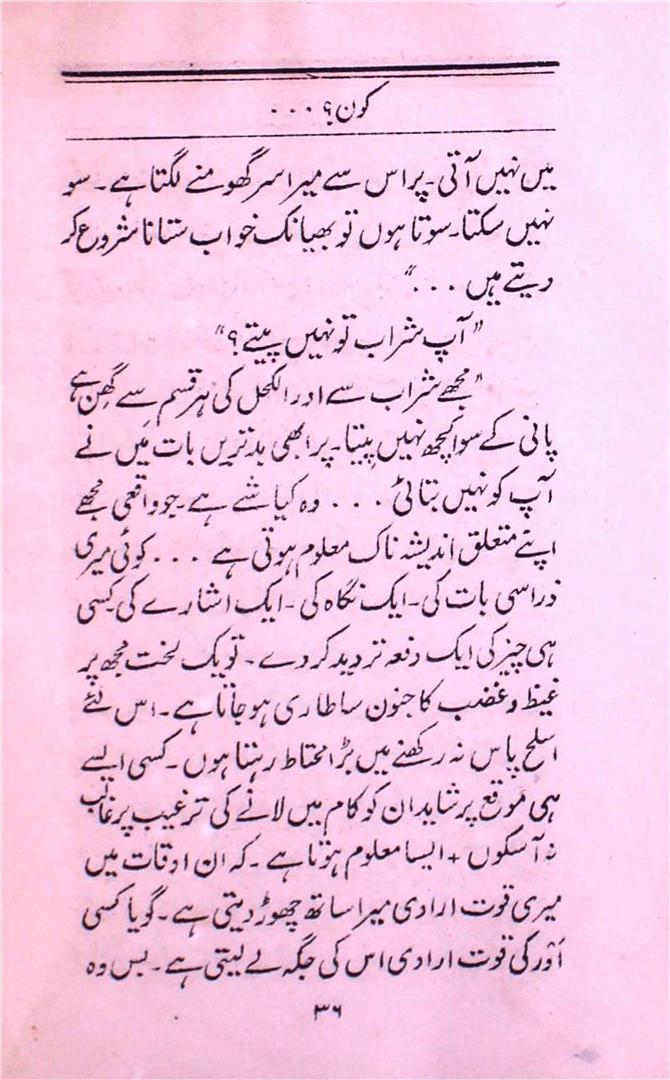 کون؟ . . .
میں نہیں آتی۔ پر اس سے میرا سر گھومنے لگتا ہے۔ سو
نہیں سکتا۔ سوتا ہوں تو بھیانک خواب ستانا شروع کر
دیتے ہیں . . .“
”آپ شراب تو نہیں پیتے؟“
”مجھے شراب سے اور الکحل کی ہر قسم سے گھِن ہے
پانی کے سوا کچھ نہیں پیتا۔ پر ابھی بدترین بات میں نے
آپ کو نہیں بتائی . . . وہ کیا شے ہے۔ جو واقعی مجھے
اپنے متعلق اندیشہ ناک معلوم ہوتی ہے . . . کوئی میری
ذرا سی بات کی۔ ایک نگاہ کی۔ ایک اشارے کی کسی
ہی چیز کی ایک دفعہ تردید کر دے۔ تو یک لخت مجھ پر
غیظ و غضب کا جنون سا طاری ہو جاتا ہے۔ اس لئے
اسلح پاس نہ رکھنے میں بڑا محتاط رہتا ہوں۔ کسی ایسے
ہی موقع پر شاید ان کو کام میں لانے کی ترغیب پر غالب
نہ آ سکوں + ایسا معلوم ہوتا ہے۔ کہ ان اوقات میں
میری قوت ارادی میرا ساتھ چھوڑ دیتی ہے۔ گویا کسی
اَور کی قوت ارادی اس کی جگہ لے لیتی ہے۔ بس وہ
۳۶